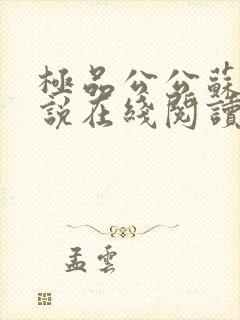 極品公公蘇
說在綫閱讀
孟雲